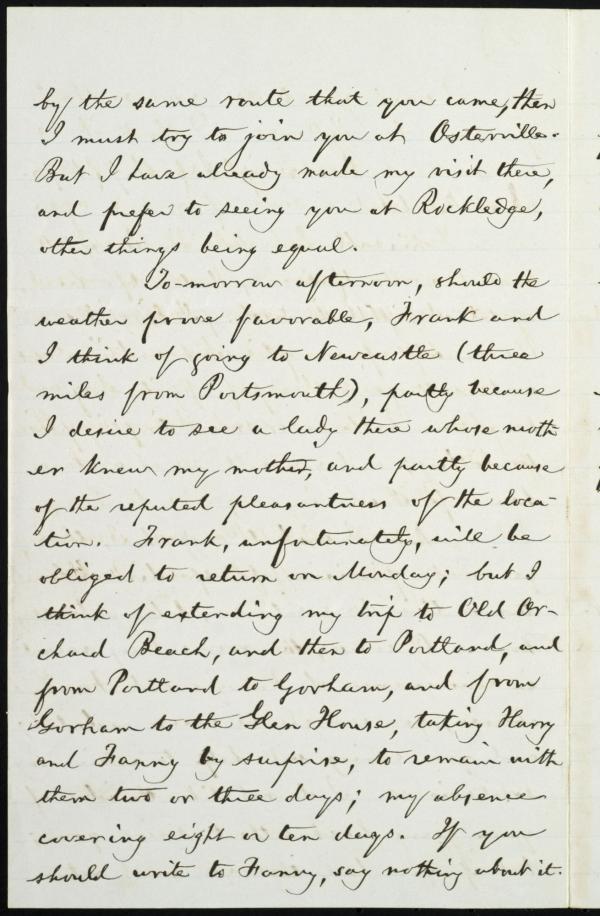 by the same route that you came, then
I must try to join you at Osterville.
But I have already made my visit there,
and prefer to seeing you at Rockledge,
other things being equal.
To-morrow afternoon, should the
weather prove favorable, Frank and
I think of going to Newcastle (three
miles from Portsmouth), partly because
I desire to see a lady there whose moth
er knew my mother, and partly because
of the reputed pleasantness of the loca-
tion. Frank, unfortunately, will be
obliged to return on Monday; but I
think of extending my trip to Old Or-
chard Beach, and then to Portland, and
from Portland to Gorham, and from
Gorham to the Glen House, taking Harry
and Fanny by surprise, to remain with
them two or three days; my absence
covering eight or ten days. If you
should write to Fanny, say nothing about it.